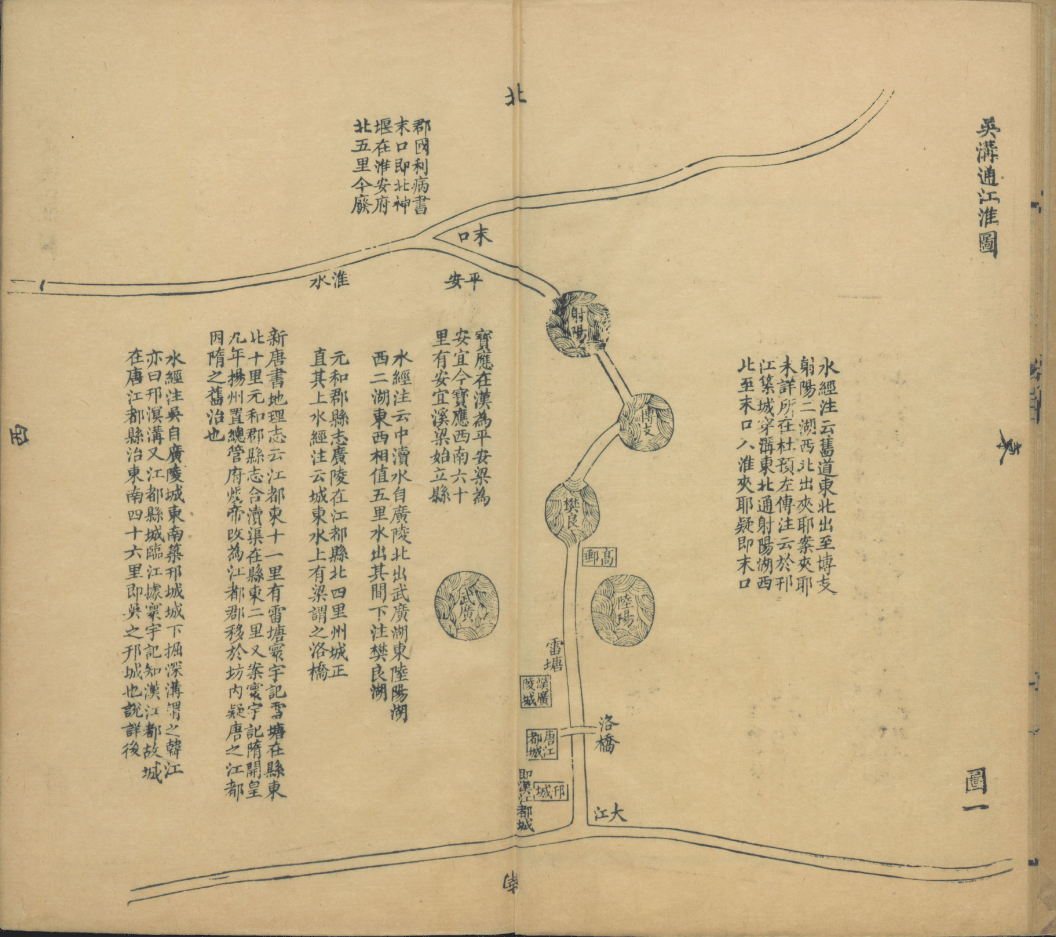 吳溝通江淮圖
圖一
北
東
南
西
水經注云舊道東北出至博支
射陽二湖西北出夾耶案夾耶
未詳所在杜預左傳注云於邗
江築城穿溝東北通射陽湖西
北至末口入淮夾耶疑即末口
郡國利病書
末口即北神
堰在淮安府
北五里今廢
末口
淮水
平安
射陽
博支
樊良
高郵
陸陽
武廣
雷塘
漢廣
陵城
洛橋
唐江
都城
邗城
即漢江都城
大江
寶應在漢為平安梁為
安宜今寶應西南六十
里有安宜溪梁始立縣
水經注云中瀆水自廣陵北出武廣湖東陸陽湖
西二湖東西相值五里水出其間下注樊良湖
元和郡縣志廣陵在江都縣北四里州城正
直其上水經注云城東水上有梁謂之洛橋
新唐書地理志云江都東十一里有雷塘寰宇記雷塘在縣東
北十里元和郡縣志合瀆渠在縣東二里又案寰宇記隋開皇
九年揚州置總管府煬帝改為江都郡移於坊內疑唐之江都
因隋之舊治也
水經注吳自廣陵城東南築邗城城下掘深溝謂之韓江
亦曰邗溟溝又江都縣城臨江據寰宇記知漢江都故城
在唐江都縣治東南四十六里即吳之邗城也說詳後